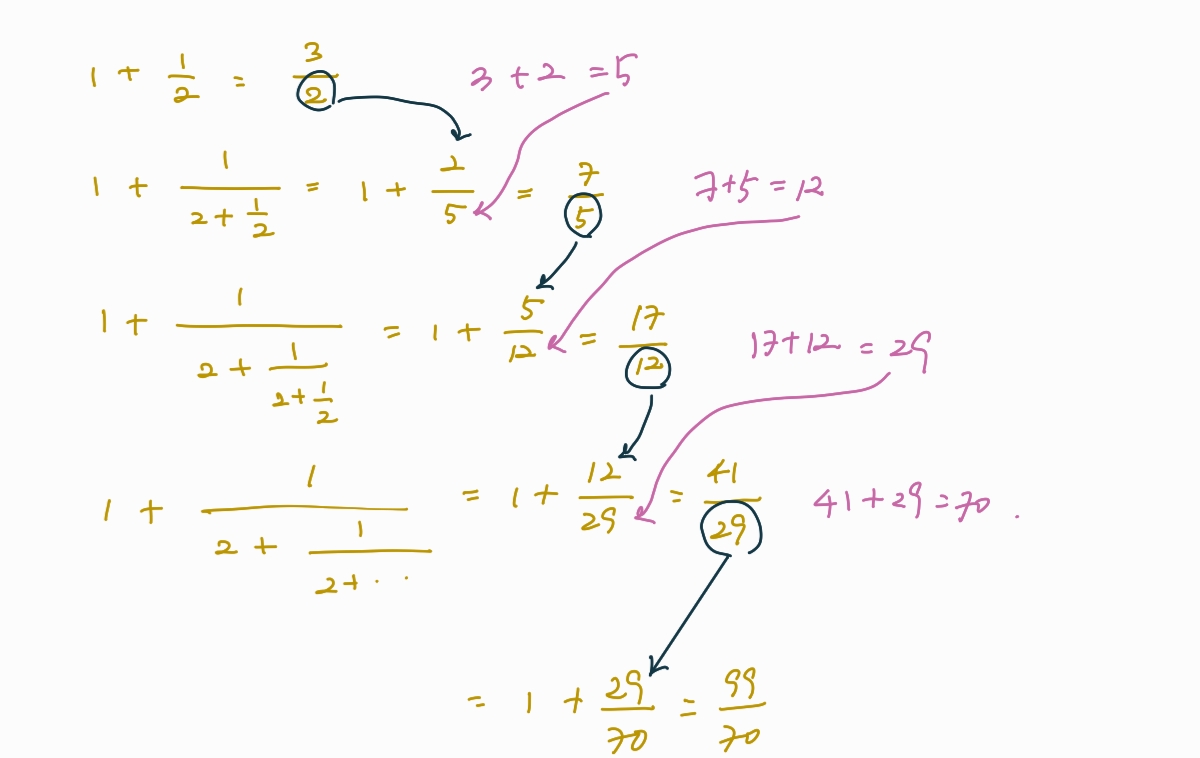 1 + 1/2 = 3/2    3 + 2 = 5
1 + 1/(2 + 1/2) = 1 + 2/5 = 7/5    7 + 5 = 12
1 + 1/(2 + 1/(2 + 1/2)) = 1 + 5/12 = 17/12    17 + 12 = 29
1 + 1/(2 + 1/(2 + · ·)) = 1 + 12/29 = 41/29    41 + 29 = 70 .
= 1 + 29/70 = 99/70